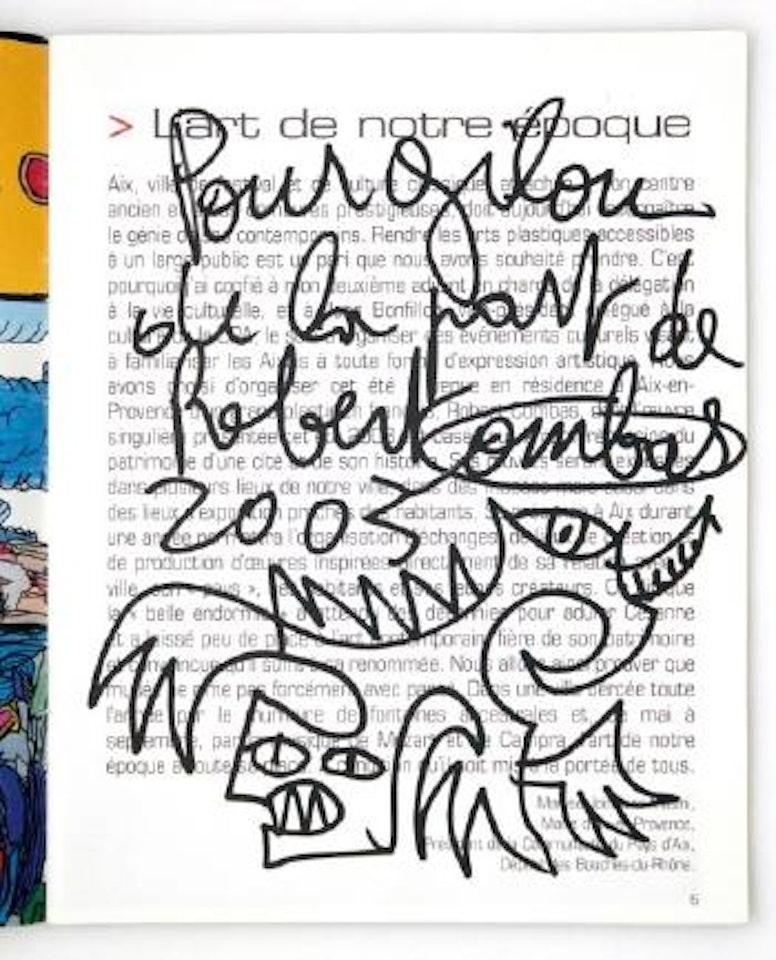 > L'art de notre époque
Pour gilou
de la part de
Robert Combas
2003
Aix, ville de festival et de culture classique, attachée à son centre
ancien et prestigieuses, doit aujourd'hui
le génie de contemporains. Rendre les arts plastiques accessibles
à un large public est un pari que nous avons souhaité prendre. C'est
pourquoi j'ai confié à mon deuxième adjoint en charge de la délégation
à la vie culturelle, et à Bonfillon délégué à la
culture de la CPA, le soin d'organiser des événements culturels visant
à familiariser les Aixois à toute forme d'expression artistique. Nous
avons choisi d'organiser cet été la venue en résidence à Aix-en-
Provence d'un grand plasticien français, Robert Combas, dont l'œuvre
singulière du
patrimoine d'une cité et de son histoire. Ses œuvres seront exposées
dans plusieurs lieux de notre ville, dans des musées mais aussi dans
des lieux d'exposition proches des habitants. à Aix durant
une année permettra l'organisation d'échanges, de création
de production d'œuvres inspirées directement de sa relation
ville, son « pays », ses habitants et ses jeunes créateurs.
la « belle endormie » a attendu pour aduler Cézanne
et a laissé peu de place à l'art contemporain, fière de son patrimoine
et convaincue qu'il suffit à sa renommée. Nous allons ainsi prouver que
musée ne rime pas forcément avec passé. Dans une ville bercée toute
l'année par le murmure de fontaines ancestrales et de mai à
septembre, par la musique de Mozart et de Campra, l'art de notre
époque a toute sa place, à condition qu'il soit mis à la portée de tous.
Maire d'Aix-en-Provence,
Président de la Communauté du Pays d'Aix,
Député des Bouches-du-Rhône.
5